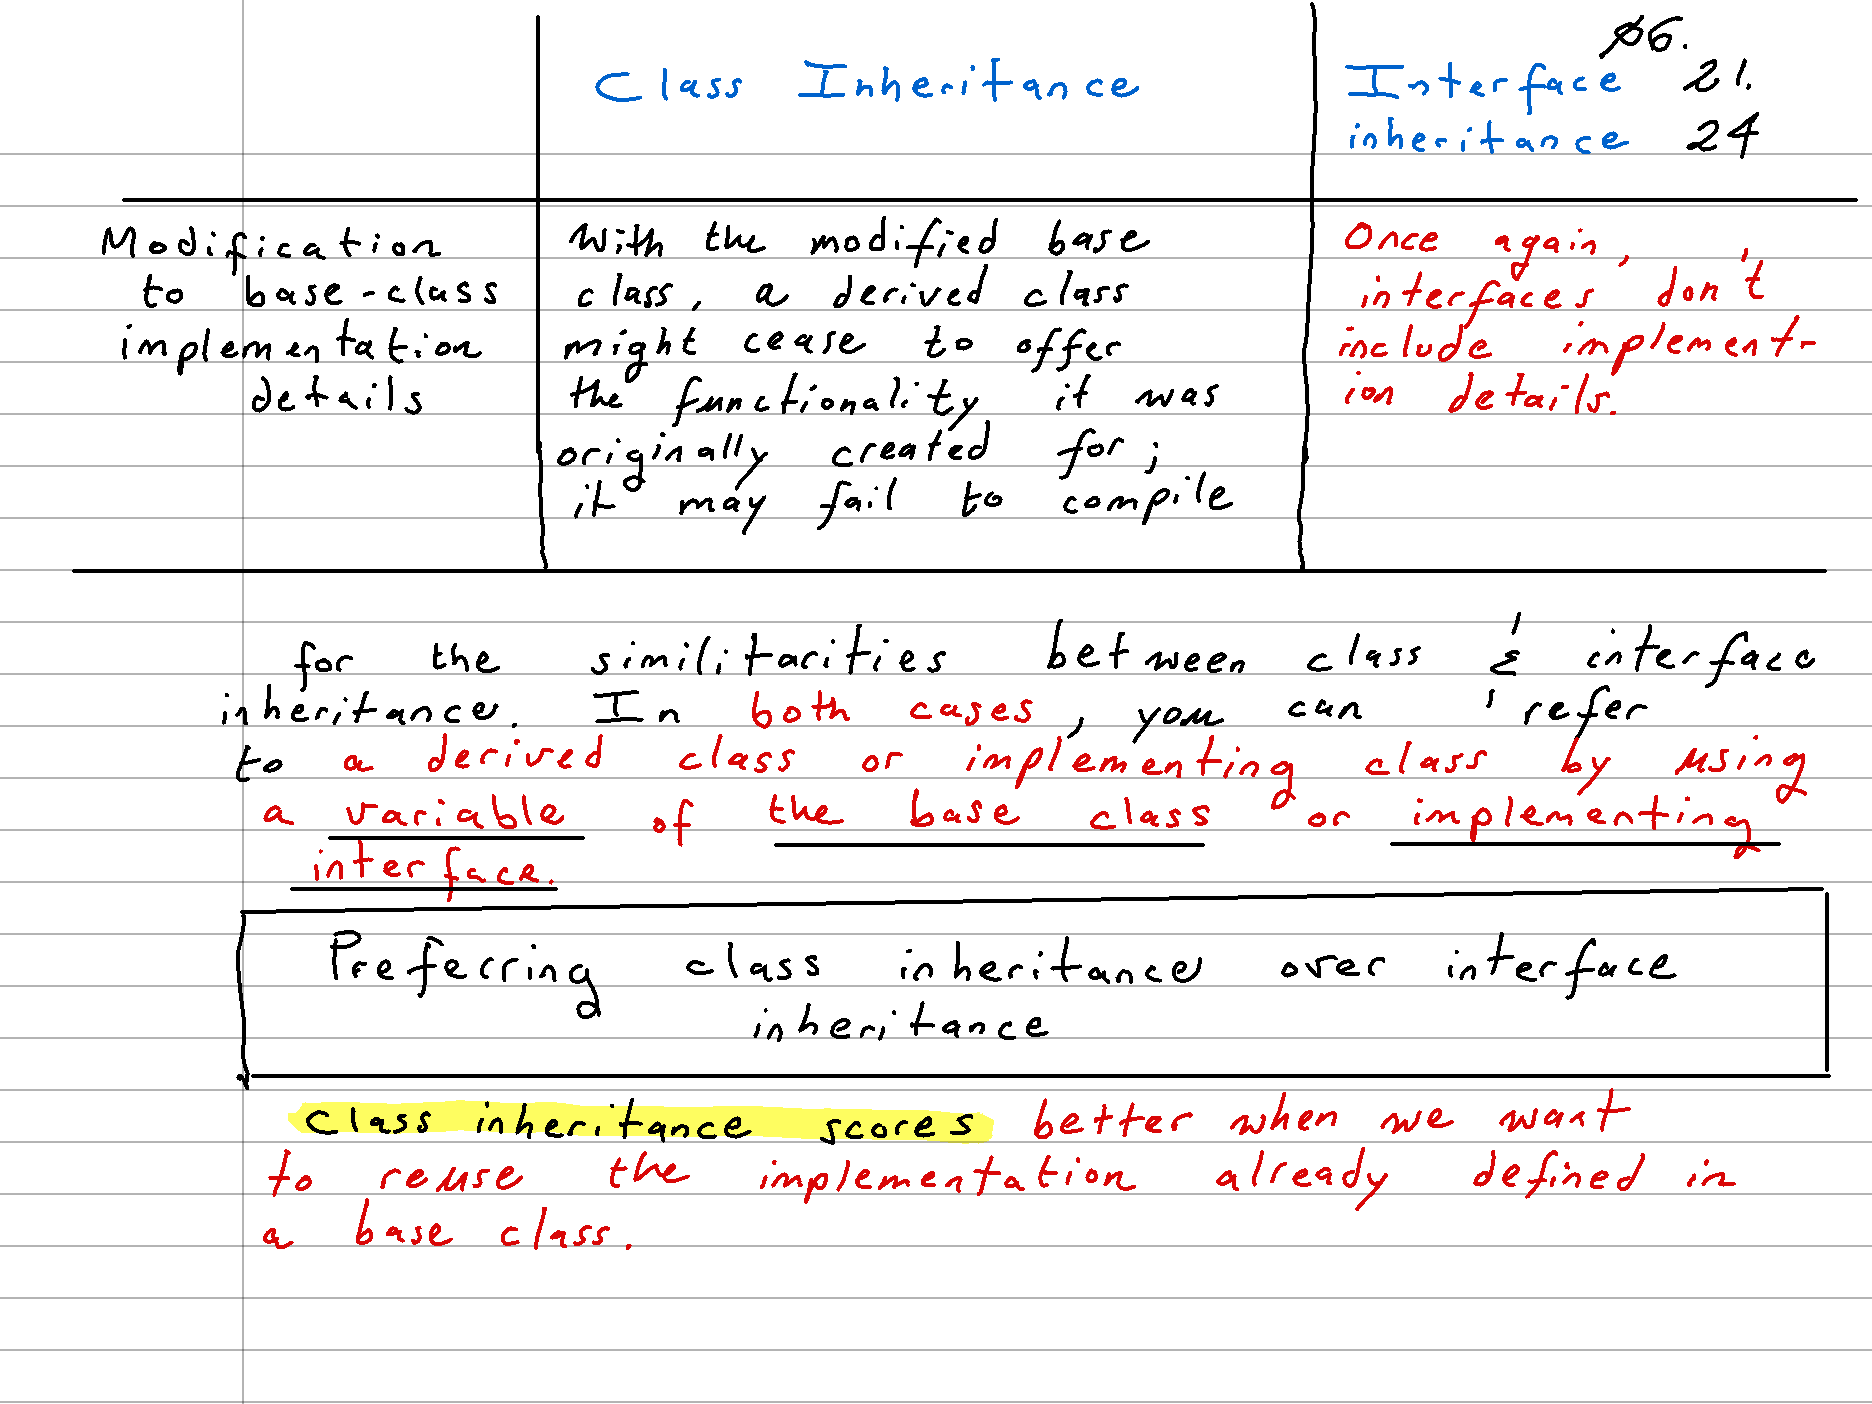 ø6.
Class Inheritance
Interface 21.
inheritance 24
Modification
to base-class
implementation
details
With the modified base
class, a derived class
might cease to offer
the functionality it was
originally created for;
it may fail to compile
Once again,
interfaces don't
include implement-
ion details.
for the similitarities between class & interface
inheritance. In both cases, you can refer
to a derived class or implementing class by using
a variable of the base class or implementing
interface.
Preferring class inheritance over interface
inheritance
Class inheritance scores better when we want
to reuse the implementation already defined in
a base class.